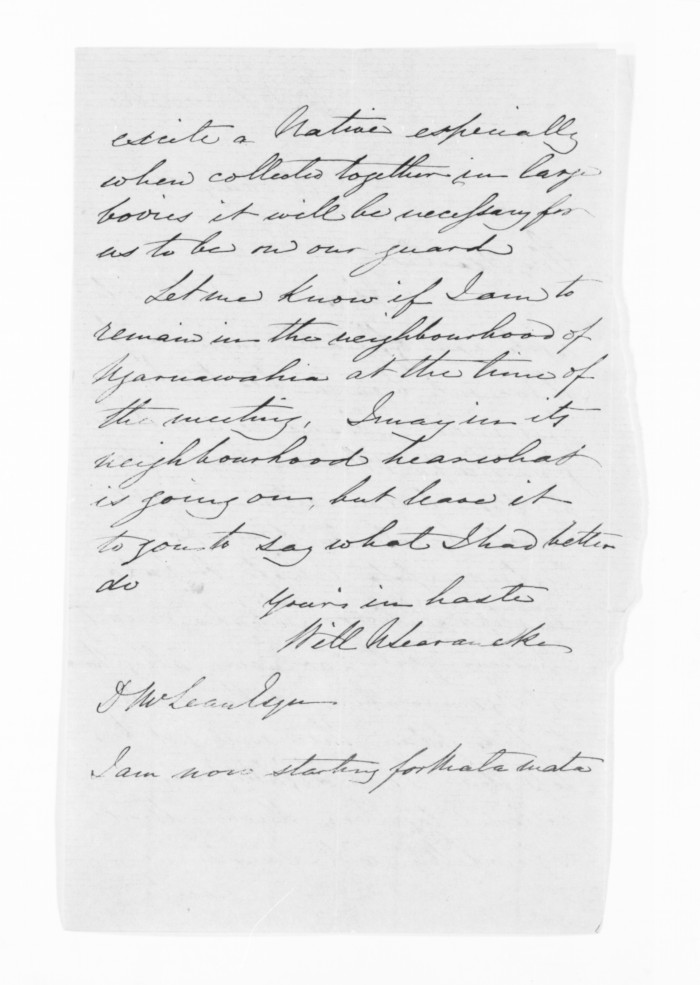 excite a Native especially
when collected together in large
bodies it will be necessary for
us to be on our guard
Let me know if I am to
remain in the neighbourhood of
Ngaruawahia at the time of
the meeting, I may in its
neighbourhood hear what
is going on, but leave it
to you to say what I had better
do
Yours in haste
Will N Searancke
D McLean Esqre
I am now starting for Mata mata